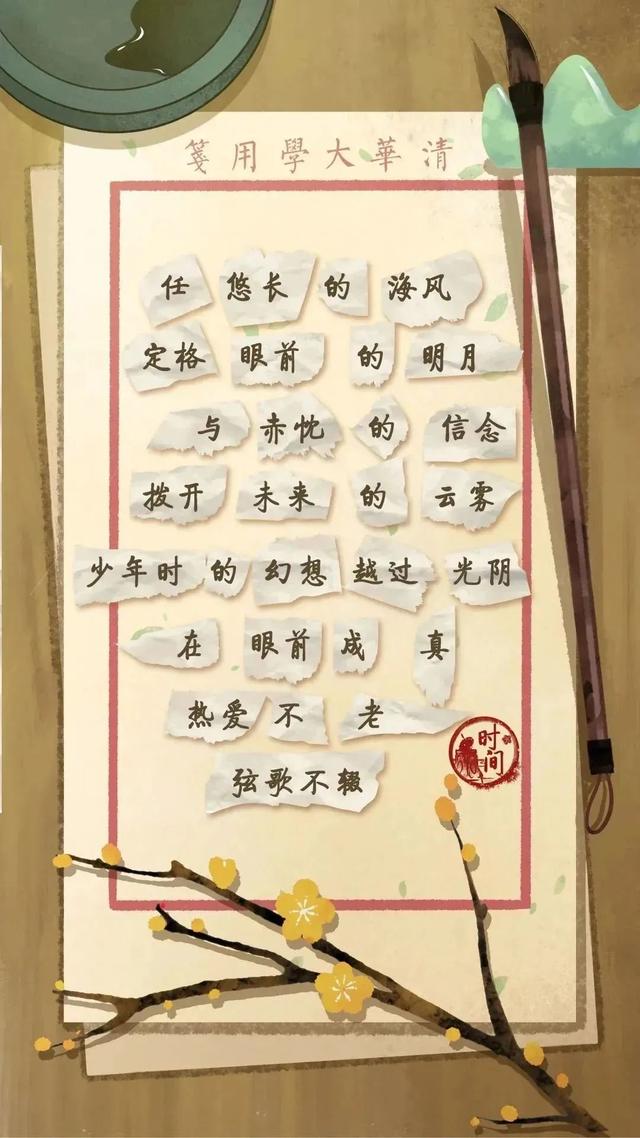 清華大學用箋
任悠长的海风
定格眼前的明月
与赤忱的信念
拨开未来的云雾
少年时的幻想越过光阴
在眼前成真
热爱不老
弦歌不辍
时间